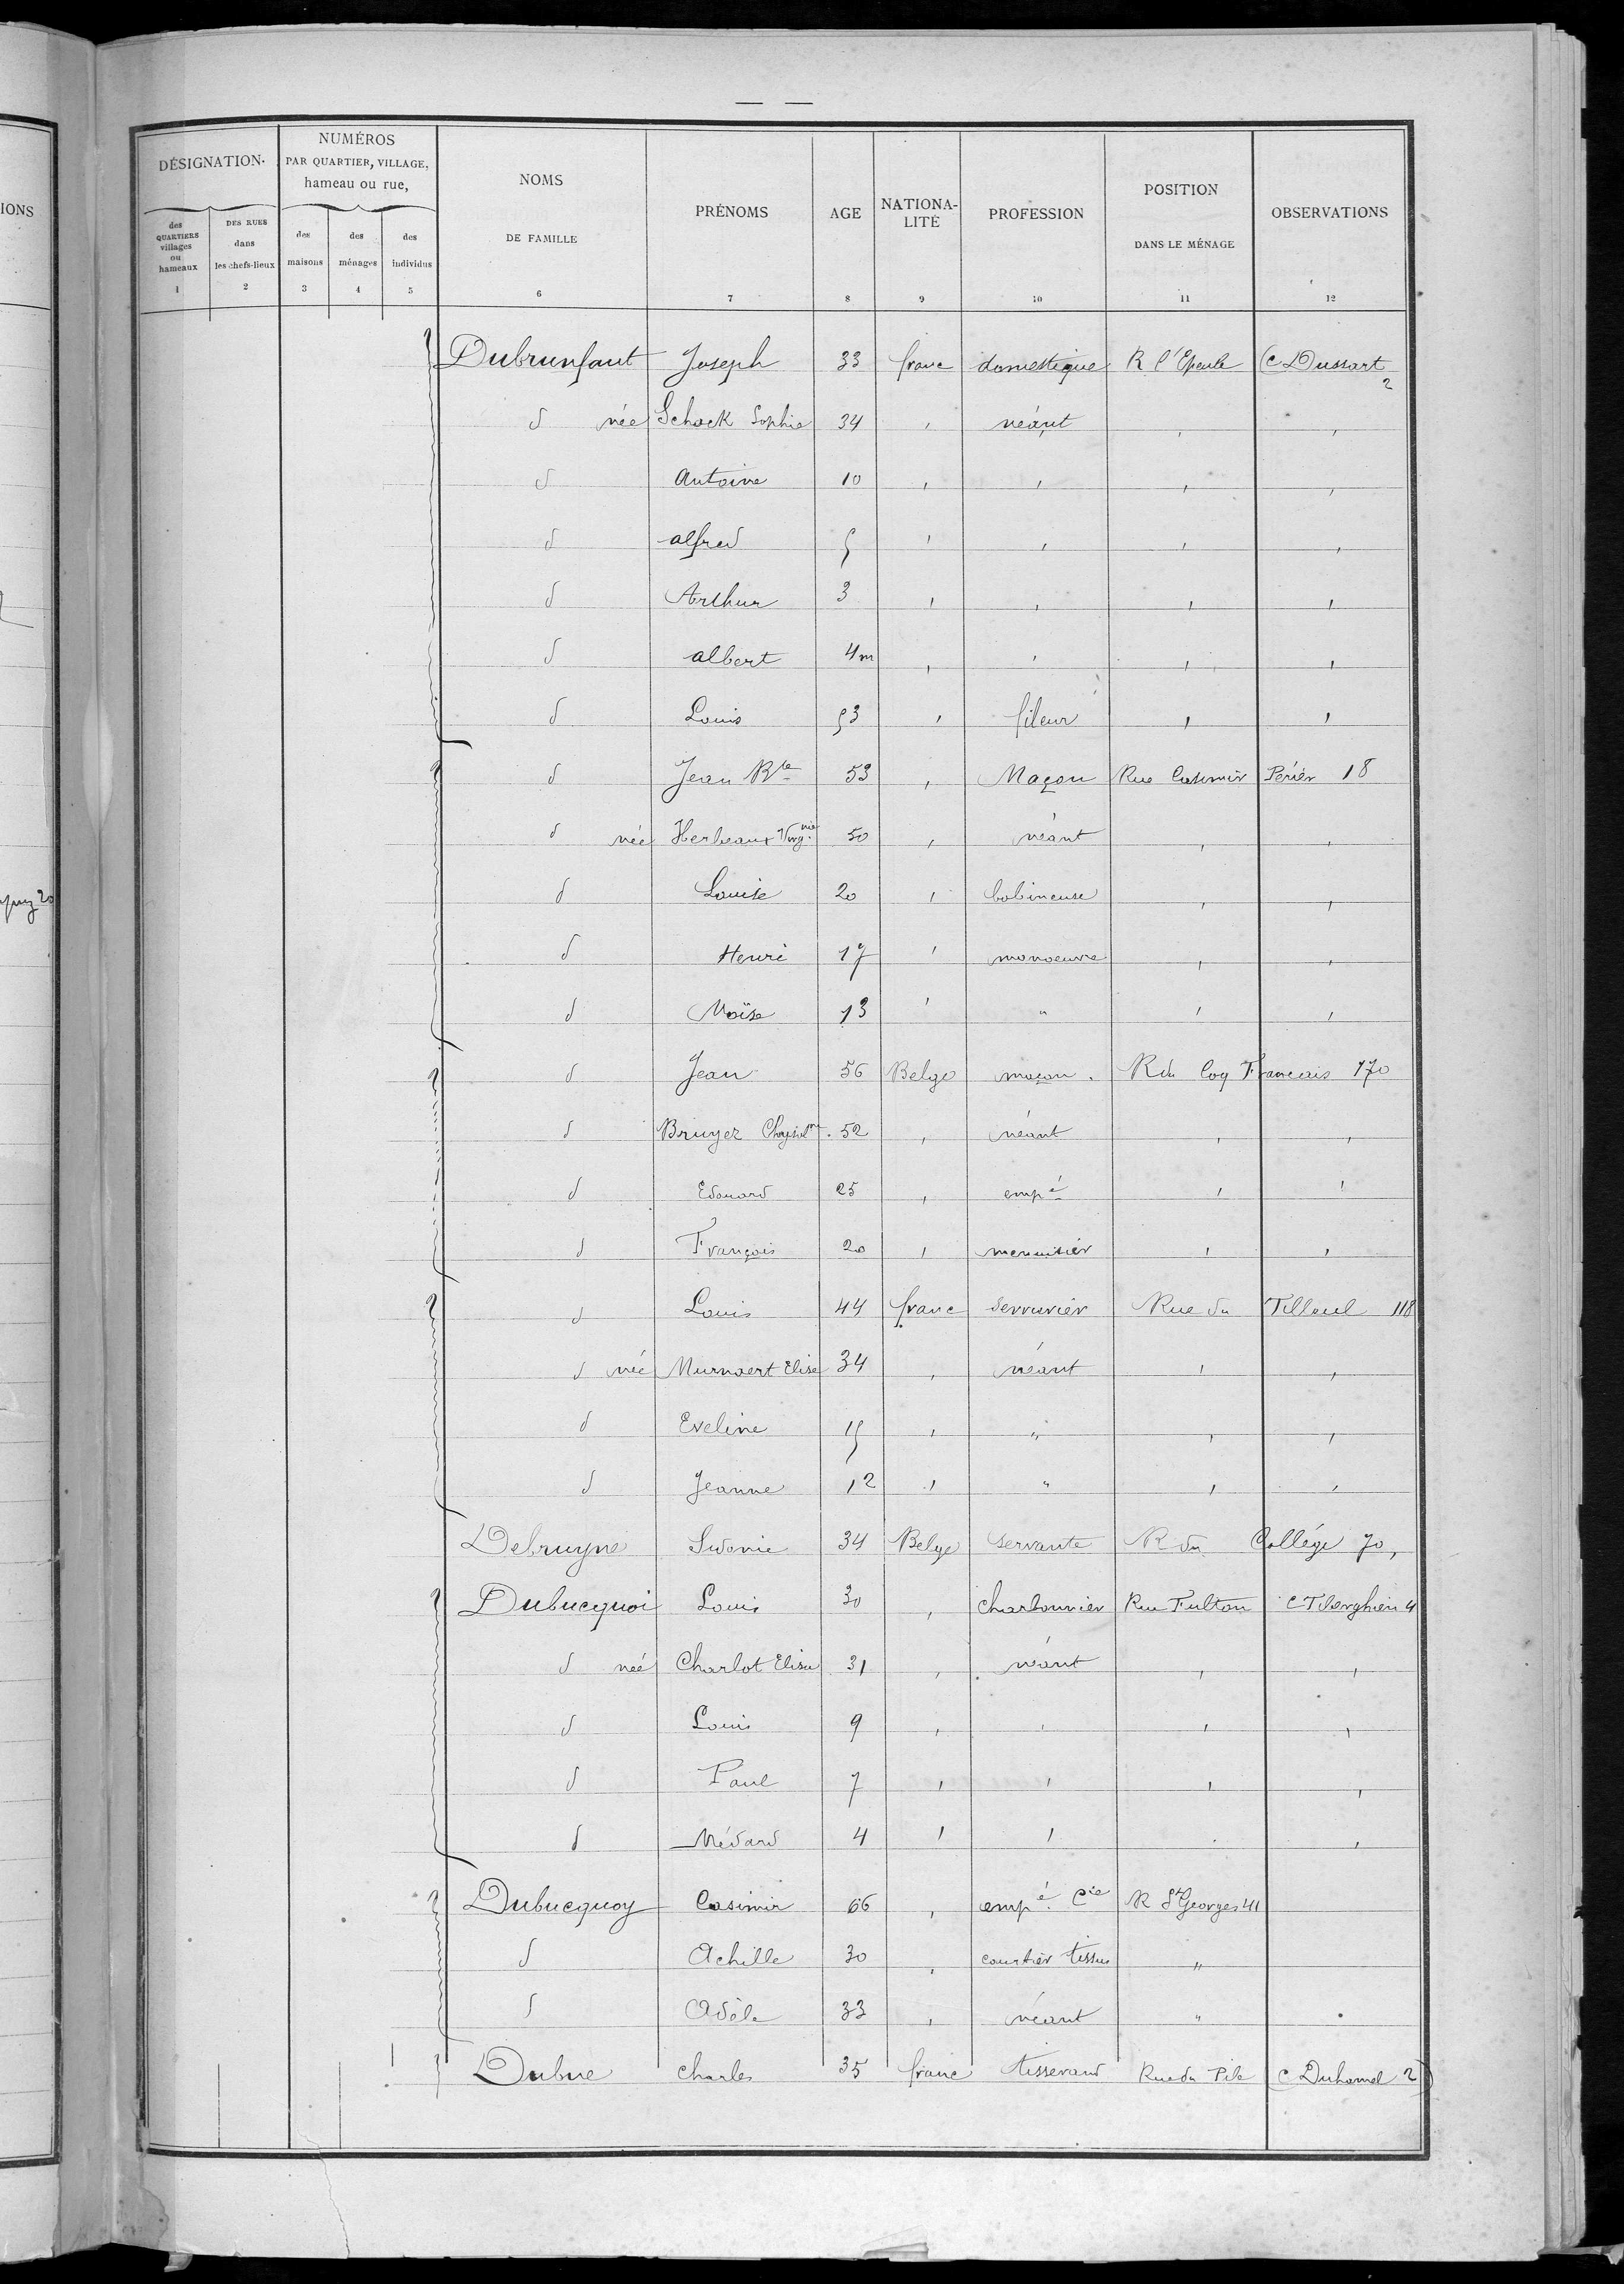 IONS
20
DÉSIGNATION.
NUMÉROS
PAR QUARTIER, VILLAGE,
hameau ou rue,
NOMS
DE FAMILLE
PRÉNOMS
AGE
NATIONA-
LITÉ
PROFESSION
POSITION
DANS LE MÉNAGE
OBSERVATIONS
des
QUARTIERS
villages
ou
hameaux
DES RUES
dans
les chefs-lieux
des
maisons
des
ménages
des
individus
1 2 3 4 5 6 7 8 9 10 11 12
Dubrunfaut Joseph 33 franc domestique R l'Epeule (C Dussart 2
d née Schock Sophie 34 , néant , ,
d Antoine 10 , , , ,
d alfred 5 , , , ,
d Arthur 3 , , , ,
d albert 4m , , , ,
d Louis 53 , fileur , ,
d Jean Bte 53 , Maçon Rue Casimir Périer 18
d née Herbeaux Virgnie 50 , néant , ,
d Louise 20 , bobineuse , ,
d Henri 17 , manoeuvre , ,
d Moïse 13 , " , ,
d Jean 56 Belge maçon. R du Coq Francais 170
d Bruyer 52 , néant , ,
d Edouard 25 , empé , ,
d François 20 , menuisier , ,
d Louis 44 franc serrurier Rue du Tilleul 118
d née Murnaert Elise 34 , néant , ,
d Eveline 15 , " , ,
d Jeanne 12 , " , ,
Debruyne Sidonie 34 Belge servante R du Collége 70,
Dubucquoi Louis 30 , charbonnier Rue Fulton C Tiberghien 4
d née Charlot Elise 31 , néant , ,
d Louis 9 , , , ,
d Paul 7 , , , ,
d Médard 4 , , . ,
Dubucquoy Casimir 66 , empé. Cie R St Georges 41
d Achille 30 , courtier tissus "
d Adèle 33 , néant "
Dubue Charles 35 franc tisserand Rue du Pile (C Duhamel 2)